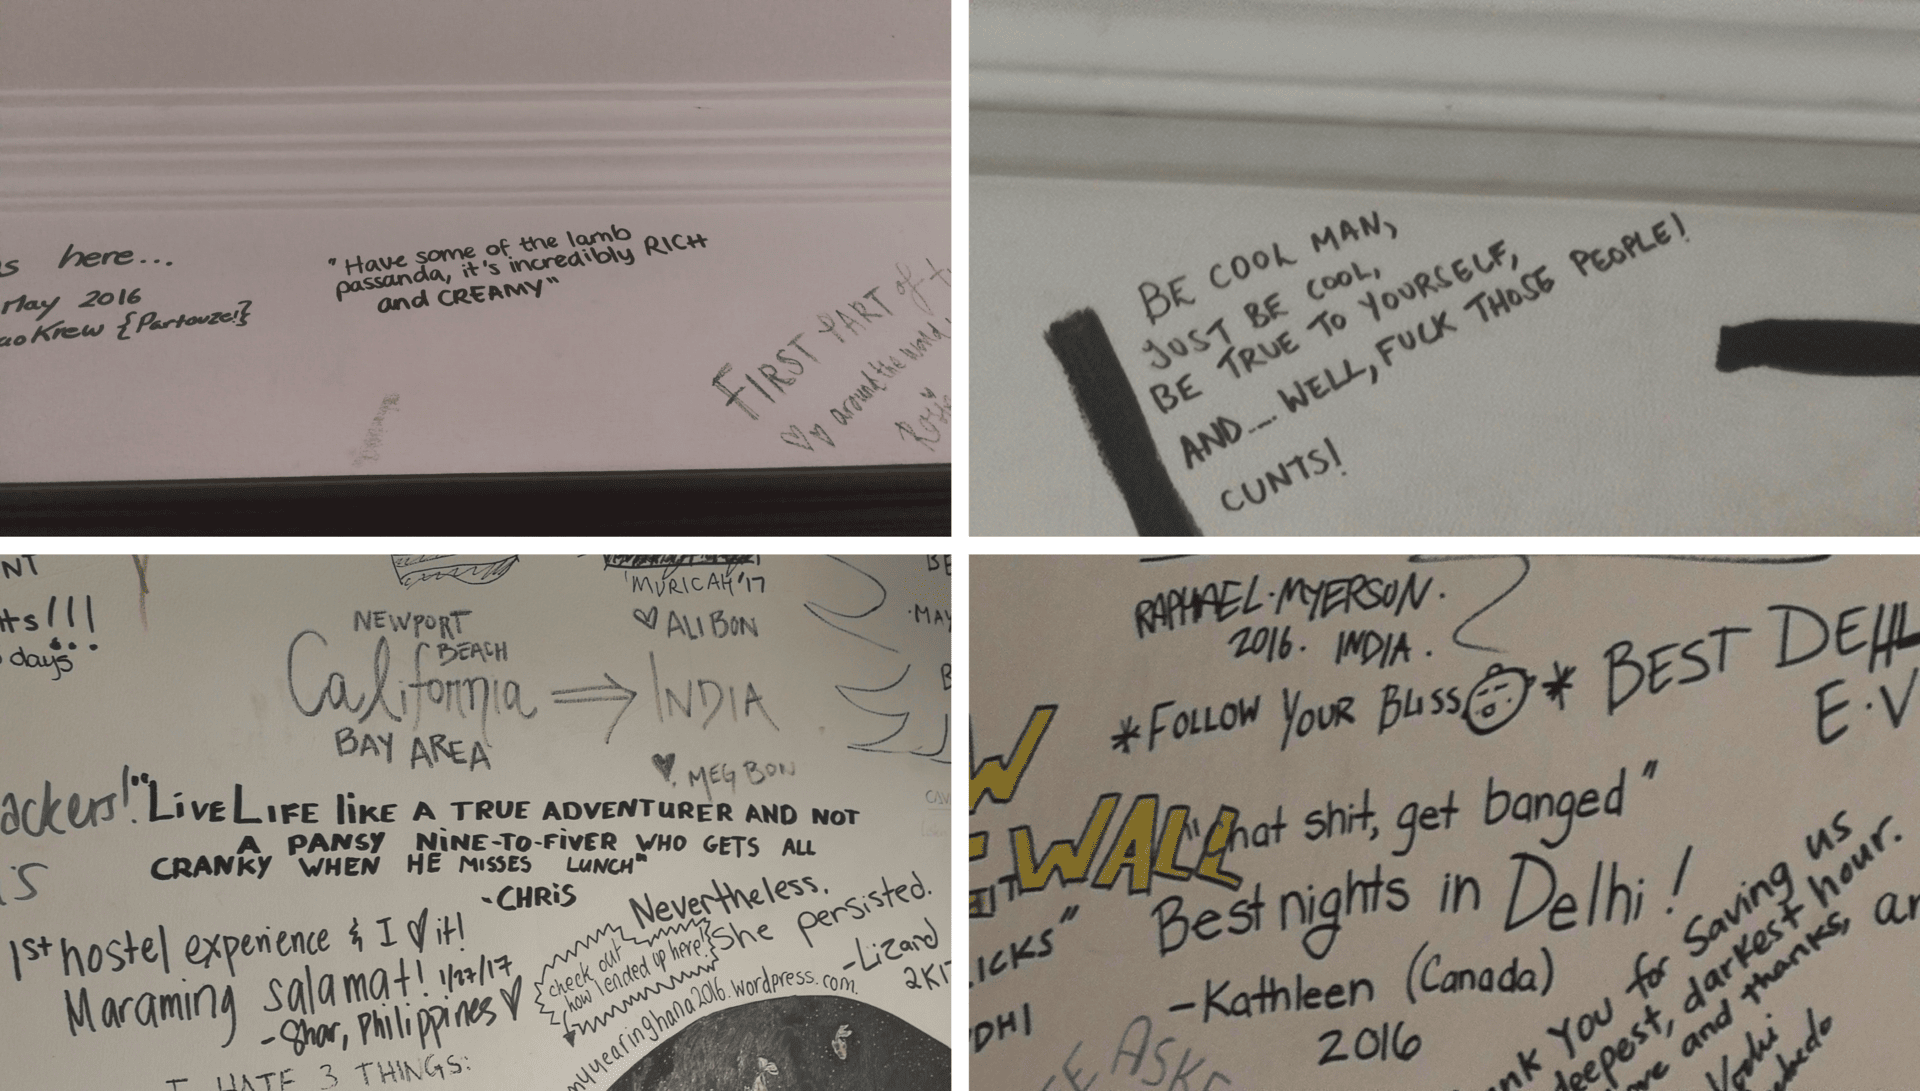 s here...
May 2016
ao Krew {Partouze!}
"Have some of the lamb
passanda, it's incredibly RICH
and CREAMY"
FIRST PART of t
♡♡ around the world
BE COOL MAN,
JUST BE COOL,
BE TRUE TO YOURSELF,
AND.... WELL, FUCK THOSE PEOPLE!
CUNTS!
NT
ts!!!
days
'MURICAH '17
♡ ALI BON
NEWPORT
BEACH
California ⇒ INDIA
BAY AREA
♥ MEG BON
BE
MAY
B
ackers!
is
"LIVE LIFE liKE A TRUE ADVENTURER AND NOT
A PANSY NINE-TO-FIVER WHO GETS ALL
CRANKY WHEN HE MISSES LUNCH"
-CHRIS
1st hostel experience & I ♡ it!
Maraming salamat! 1/27/17
-Shar, Philippines ♡
Nevertheless,
She persisted.
-Lizard
2K17
check out
how I ended up here!
myyearinghana2016.wordpress.com.
I HATE 3 THINGS:
RAPHAEL·MYERSON.
2016. INDIA.
*FOLLOW YOUR BLISS *
BEST DELH
E.V
W
WALL
"chat shit, get banged"
Best nights in Delhi!
-Kathleen (Canada)
2016
ICKS"
DHI
E ASKE
nk You for Saving us
deepest, darkest hour.
ove and thanks, an